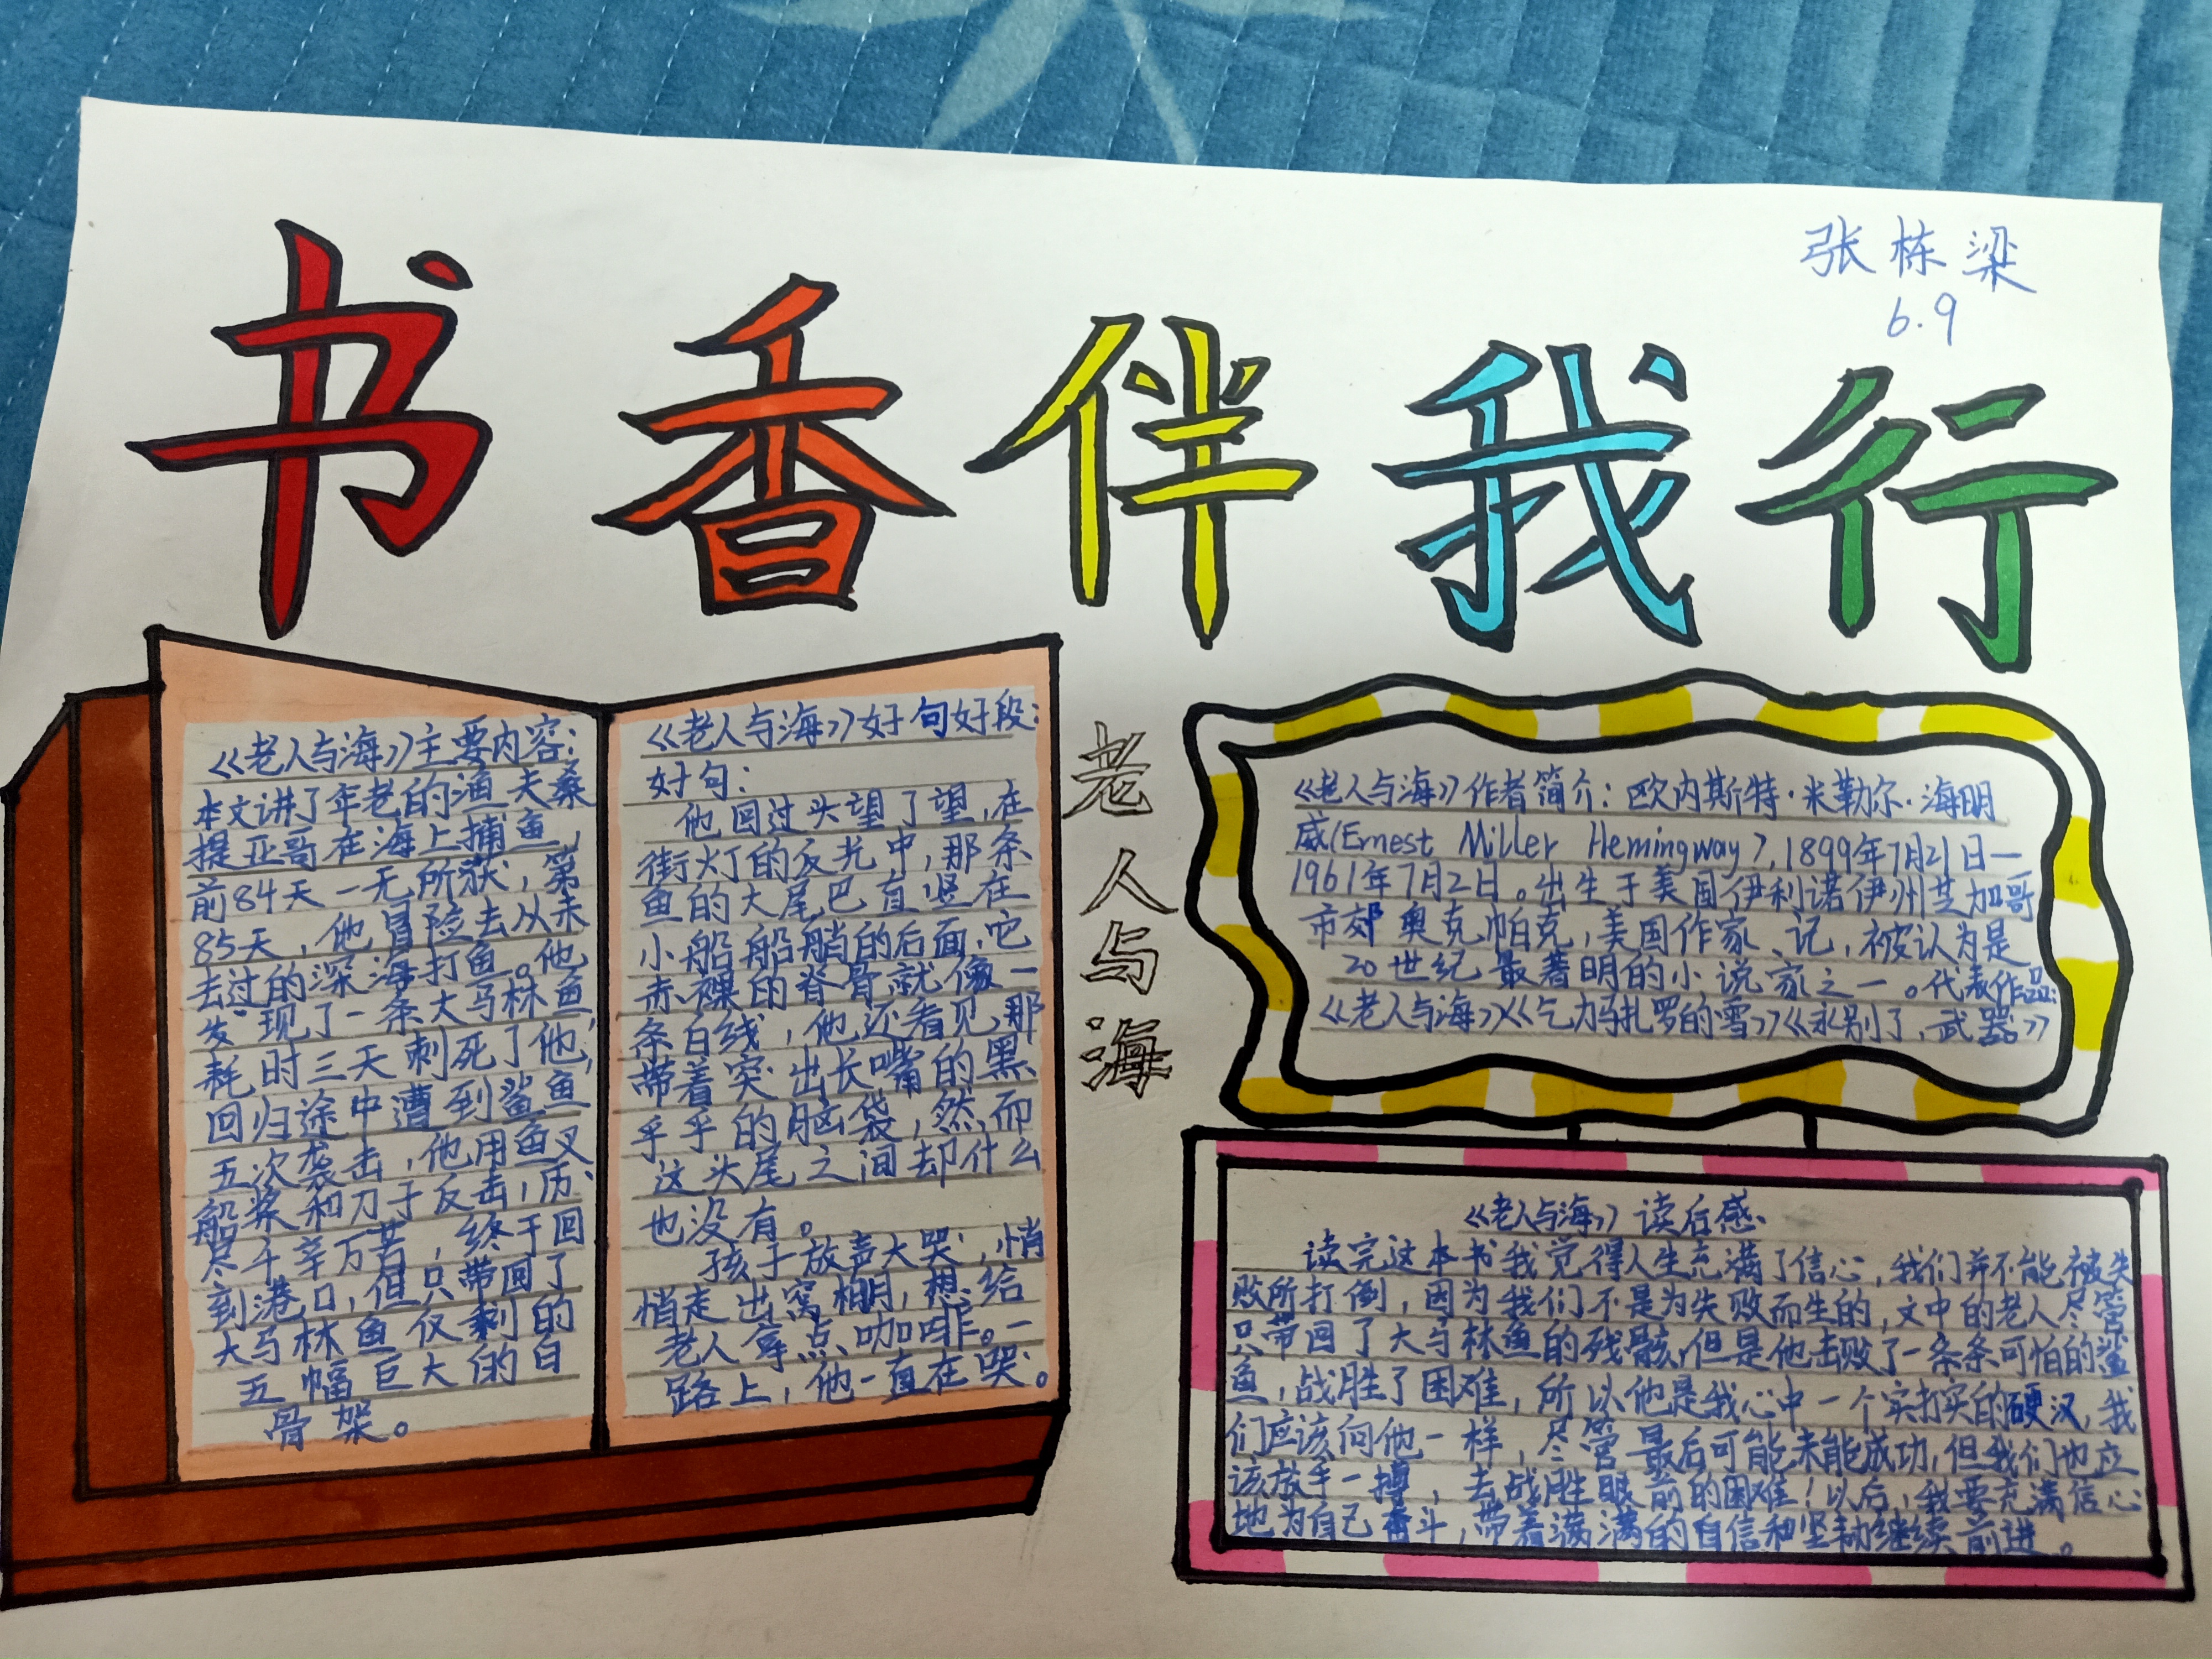 张栋梁
6.9
书香伴我行
《老人与海》主要内容:
本文讲了年老的渔夫桑
提亚哥在海上捕鱼,
前84天一无所获,第
85天,他冒险去从未
去过的深海打鱼。他
发现了一条大马林鱼
耗时三天刺死了他,
回归途中遭到鲨鱼
五次袭击,他用鱼叉
船桨和刀子反击,历
尽千辛万苦,终于回
到港口,但只带回了
大马林鱼仅剩的
五幅巨大的白
骨架。
《老人与海》好句好段:
好句:
他回过头望了望,在
街灯的反光中,那条
鱼的大尾巴直竖在
小船船艄的后面,它
赤裸的脊骨就像一
条白线,他还看见那
带着突出长嘴的黑
乎乎的脑袋,然而
这头尾之间却什么
也没有。
孩子放声大哭,悄
悄走出窝棚,想给
老人拿点咖啡。一
路上,他一直在哭。
老人与海
《老人与海》作者简介:欧内斯特·米勒尔·海明
威(Ernest Miller Hemingway),1899年7月21日—
1961年7月2日。出生于美国伊利诺伊州芝加哥
市郊奥克帕克,美国作家、记,被认为是
20世纪最著明的小说家之一。代表作品:
《老人与海》《乞力马扎罗的雪》《永别了,武器》
《老人与海》读后感、
读完这本书我觉得人生充满了信心,我们并不能被失
败所打倒,因为我们不是为失败而生的,文中的老人尽管
只带回了大马林鱼的残骸,但是他击败了一条条可怕的鲨
鱼,战胜了困难,所以他是我心中一个实打实的硬汉,我
们应该向他一样,尽管最后可能未能成功,但我们也应
该放手一搏,去战胜眼前的困难!以后,我要充满信心
地为自己奋斗,带着满满的自信和坚韧继续前进。